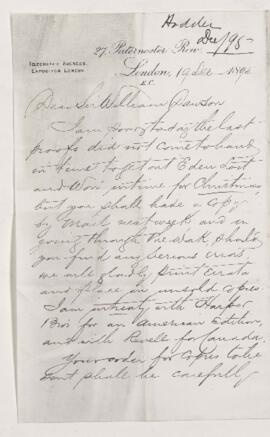 Hodder
Dec/95
27, Paternoster Row,
TELEGRAPHIC ADDRESS,
EXPOSITOR LONDON
London, 19 Dec 1895
E.C.
Dear Sir William Dawson
I am sorry to say the last
proofs did not come to hand
in time to get out Eden Lost
and Won in time for Christmas
but you shall have a copy
by Mail next week and in
going through the book, should
you find any serious errors,
we will gladly print Errata
and place in unsold copies.
I am in treaty with Harper
Bros for an American Edition,
and with Revell for Canada.
Your order for copies to be
sent shall be carefully